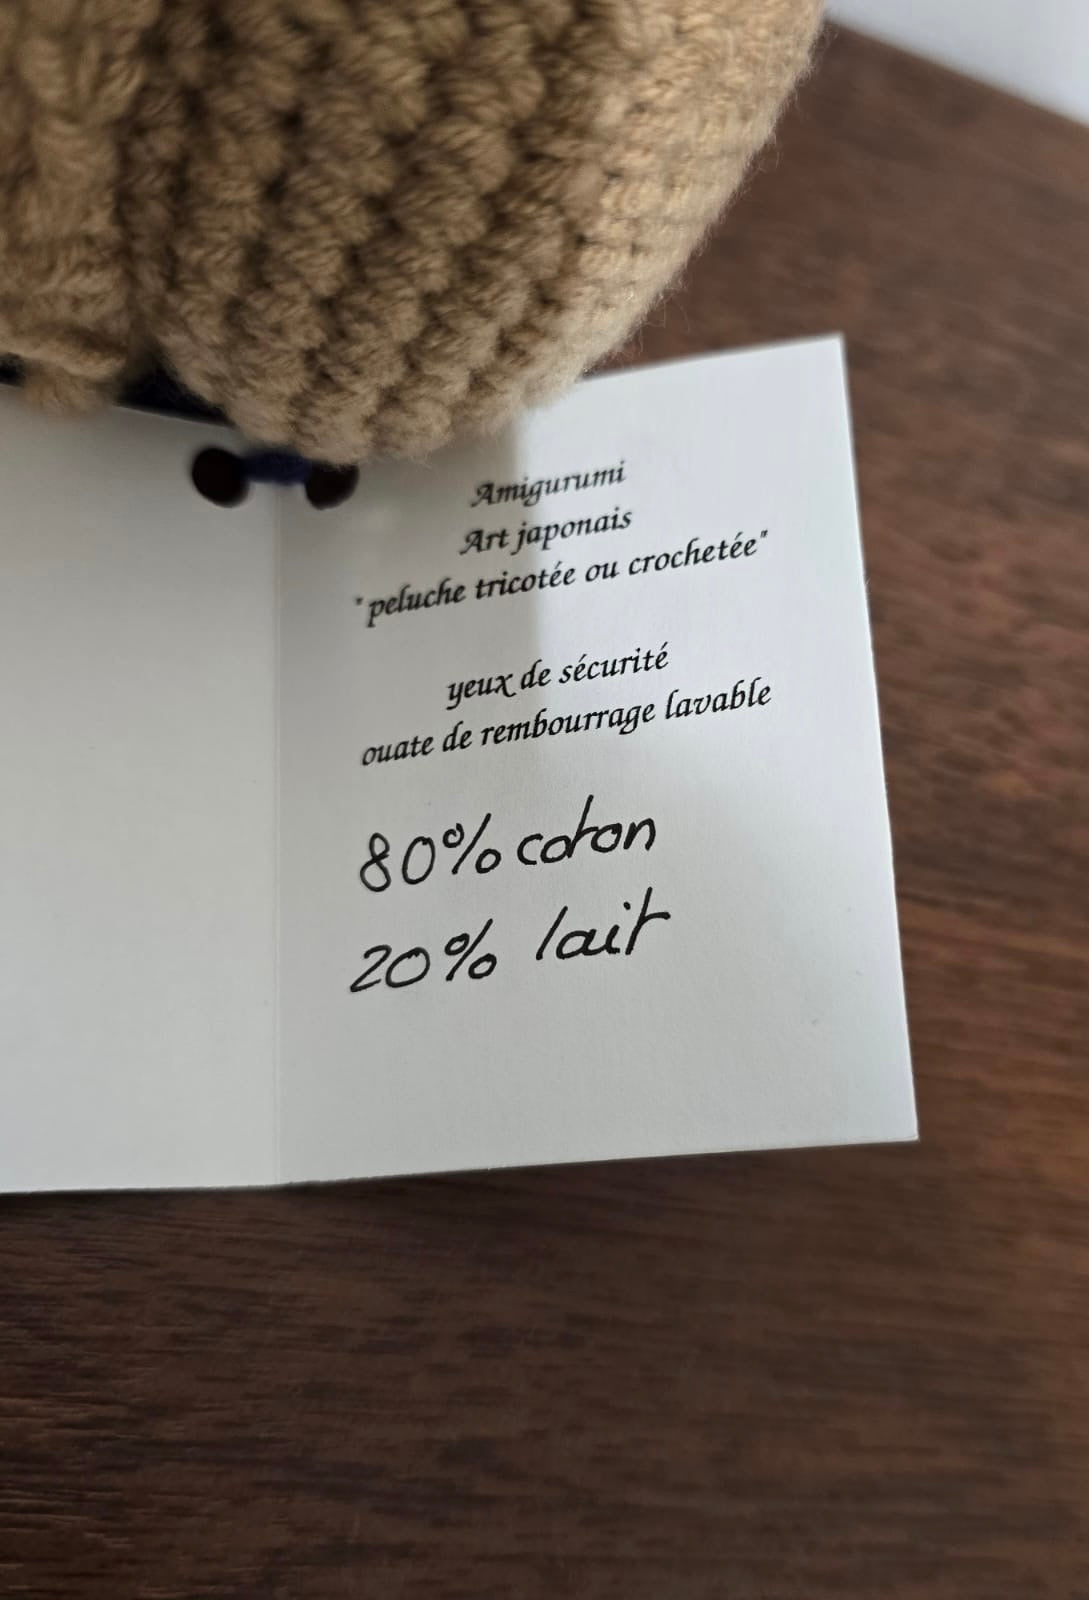 Amigurumi
Art japonais
"peluche tricotée ou crochetée"
yeux de sécurité
ouate de rembourrage lavable
80% coton
20% lait